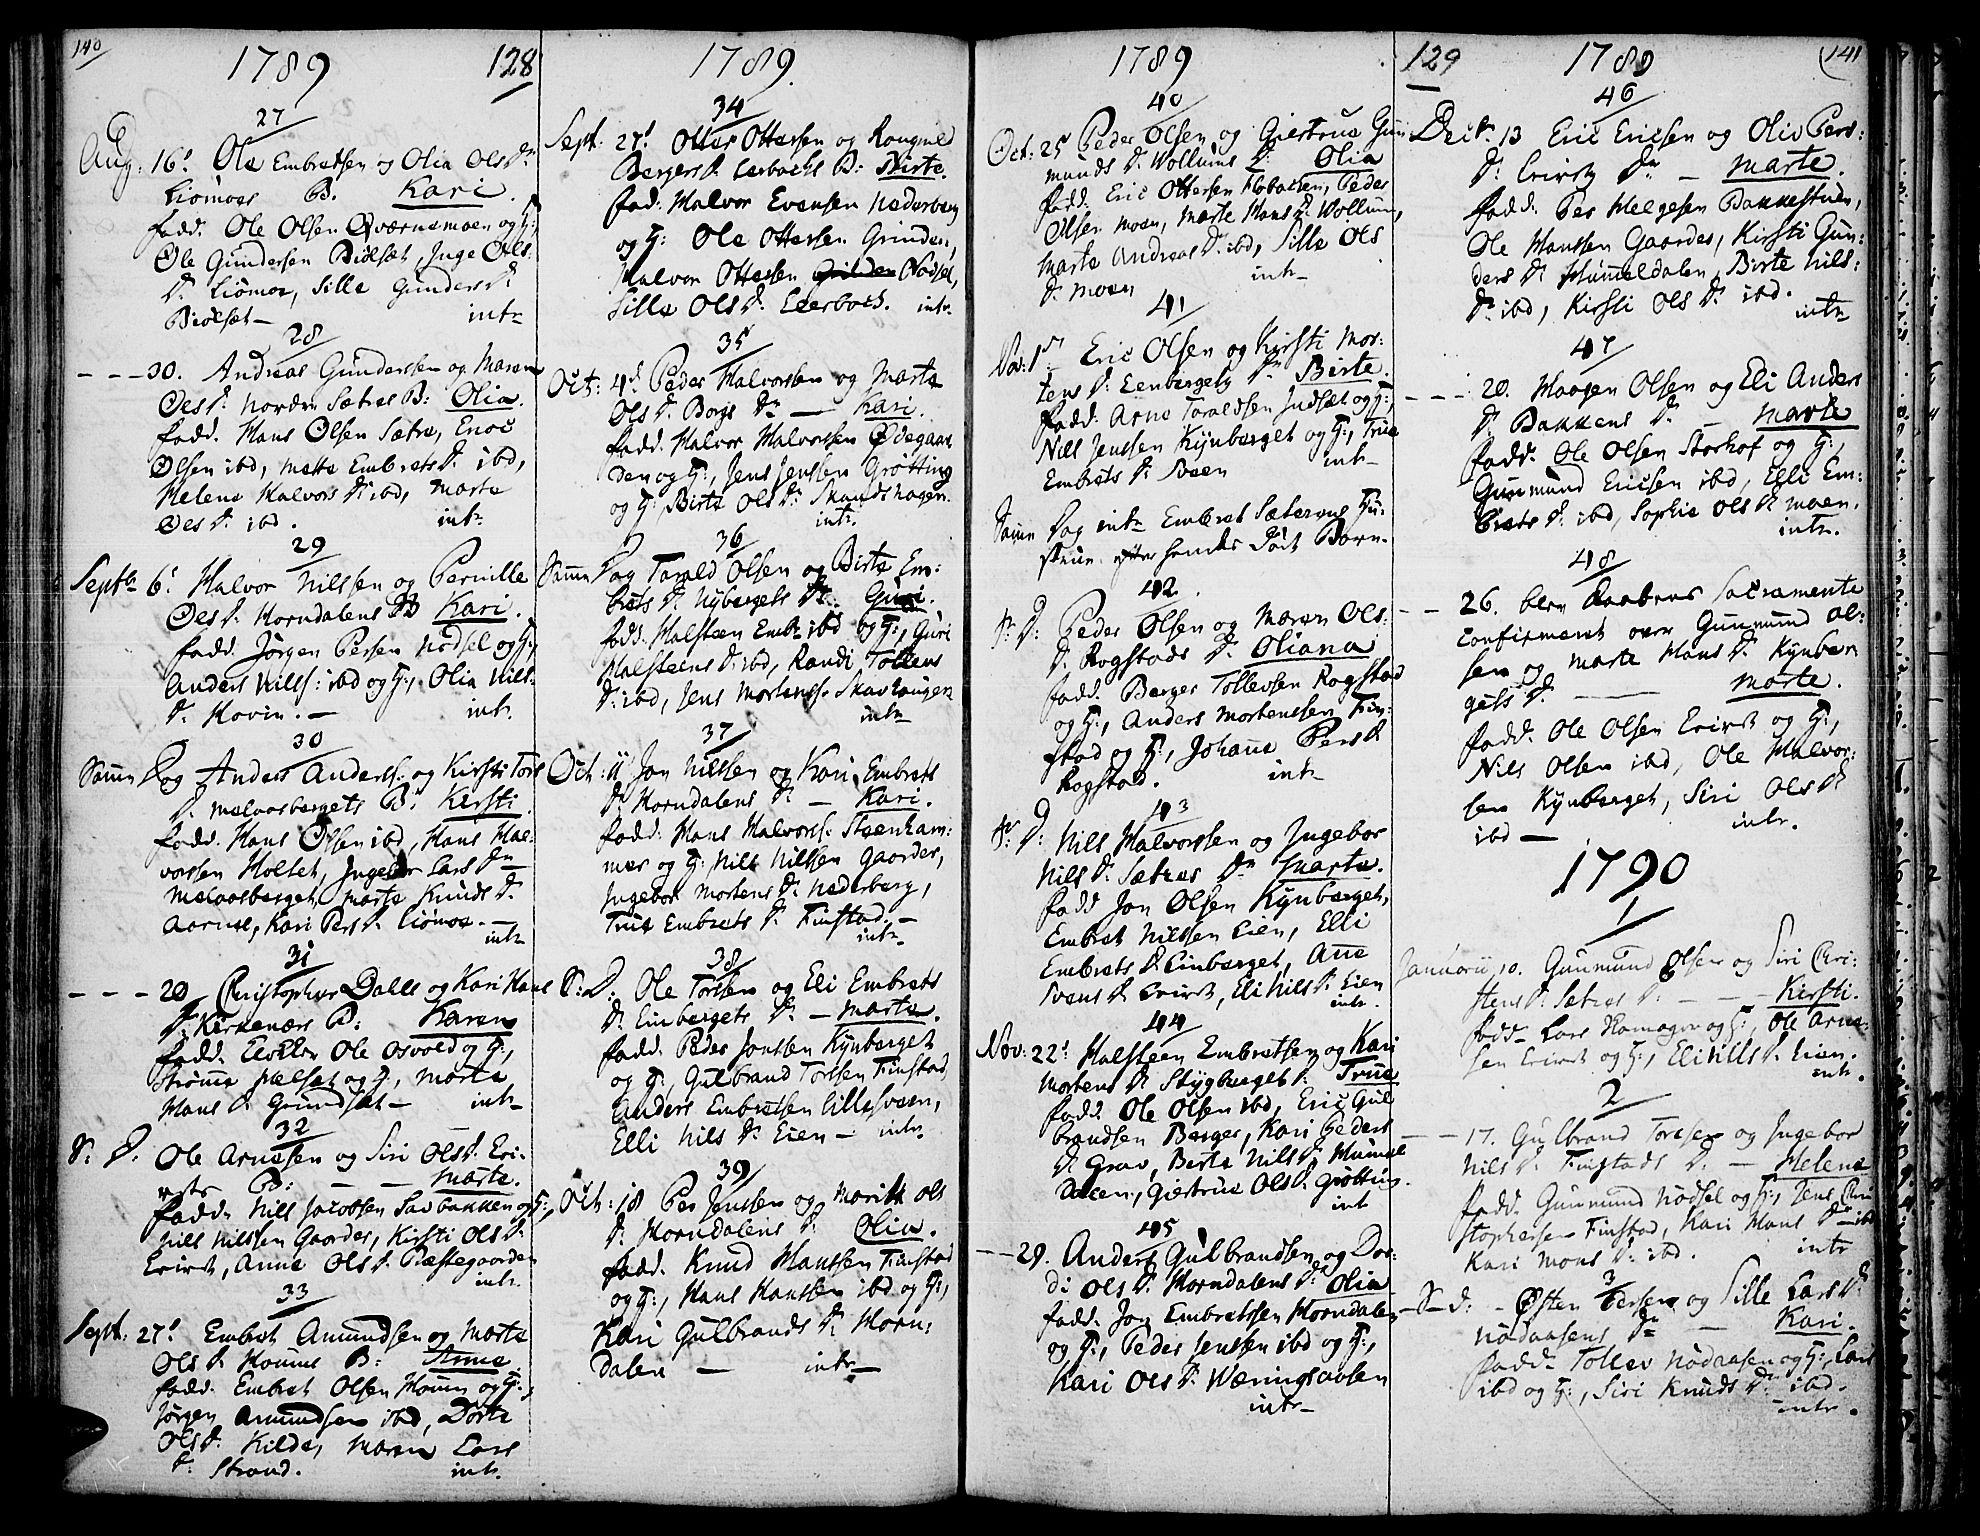 140
1789
128
27
Aug: 16. Ole Embretsen og Olia Ols Dr
Liömoes B. Kari.
fadd. Ole Olsen Qværnemoen og H:
Ole Gundersen Biölset, Inge Ols
Dr Liömoe, Sille Gunders Dr
Biölset — intr
28
- - - 30. Andreas Gundersen og Maren
Oles Dr Nordre Sætres B: Olia.
fadd. Hans Olsen Sætre, Enoc
Olsen ibd, Mette Embrets Dr ibd,
Helene Halvors Dr ibd, Marte
Oles Dr ibd. intr
29
Septr 6. Halvor Nilssen og Pernille
Oles Dr Horndalens B Kari.
fadd. Jörgen Persen Nödsel og H:,
Anders Nilss: ibd og H:, Olia Nils
Dr Hovin. — intr.
30
Samm Dag Anders Anderss: og Kirsti Tors
Dr Melaasbergets B: Kersti.
fadd. Hans Olsen ibd, Hans Hal-
vorsen Holtet, Ingebor Lars Dr
Melaasberget, Marte Knuds Dr
Aarnes, Kari Pers Dr Liömoe. — intr
31
- - - 20 Christopher Dalls og Kari Hans
Dr Kirkenærs B: Karen
fadd. Ole Osvold og H:,
Strömme Hælset og H:, Marte
Hans Dr Grundset — intr
32
S: D: Ole Arnesen og Siri Ols Dr Eri-
B: — — Marte.
fadd. Nils Jacobsen Savbakken og H:,
Nils Nilssen Gaarder, Kirsti Ols Dr
Anne Ols Dr Præstegaarden
intr.
33
Sept: 27. Embret Amundsen og Marte
Ols Dr B: Anne
fadd. Embret Olsen og H:,
Jörgen Amundsen ibd, Dorte
Ols Dr Kilde, Maren Lars
Dr Strand. intr.
1789.
34
Sept: 27. Otter Ottersen og Rangnil
Bergers Dr Leerbachs B: Birte.
fad. Halvor Evensen Nederberg
og H: Ole Ottersen Grinden,
Halvor Ottersen Grinden Nödsel,
Sille Ols Dr Leerbach. intr.
35
Oct: 4. Peder Halvorsen og Marte
Ols Dr Borgs Dr — Kari.
fadd. Halvor Halvorsen Ødegaar-
den og H:, Jens Jenssen Grötting
og H:, Birte Ols Dr Skandshagen.
intr.
36
Samm Dag Tarald Olsen og Birte Em-
brets Dr Nybergets Dr Guri.
fadd. Halsteen Embr ibd og H:, Guri
Halsteens Dr ibd, Randi Tollevs
Dr ibd, Jens Mortenss. Skavhaugen
intr
37
Oct: 11 Jon Nilssen og Kari Embrets
Dr Horndalens Dr — Kari.
fadd. Hans Halvorss. Steenham-
mer og H: Nils Nilssen Gaarder,
Ingebor Mortens Dr Nederberg,
True Embrets Dr Finstad. —
intr.
38
S: D: Ole Torsen og Eli Embrets
Dr Eenbergets Dr — Marte.
fadd. Peder Jonssen Kynberget
og H:, Gulbrand Torsen Finstad,
Anders Embretsen Lillesveen,
Elli Nils Dr Eien — intr.
39
Oct: 18 Per Jenssen og Marith Ols
Dr Horndalens Dr Olia.
fadd. Knud Hanssen Finstad
og H:, Hans Hanssen ibd og H:,
Kari Gulbrands Dr Horn-
dalen — intr —
1789
40
Oct: 25 Peder Olsen og Giertrue Gun-
munds Dr Wollums Dr Olia
fadd. Eric Ottersen Peder
Olsen Moen, Marte Hans Dr Wollum,
Marte Andreas Dr ibd, Sille Ols
Dr Moen intr
41
Nov: 1. Eric Olsen og Kirsti Mor-
tens Dr Eenbergets Dr Birte.
fadd. Arne Taraldsen Julset og H:,
Nils Jenssen Kynberget og H:, True
Embrets Dr Sveen intr
Samm Dag intr Embret Sæterens Hu-
struen efter hendes död Barn.
42
S: D: Peder Olsen og Maren Ols
Dr Rogstads Dr Oliana
fadd. Berger Tollevsen Rogstad
og H:, Anders Mortensen Fin-
stad og H:, Johanne Pers Dr
Rogstad. intr
43
S: D: Nils Halvorsen og Ingebor
Nils Dr Sætres Dr Marte.
fadd Jon Olsen Kynberget,
Embret Nilssen Eien, Elli
Embrets Dr Eenberget, Anne
Svens Dr Eli Nils Dr Eien
intr.
44
Nov: 22. Halsteen Embretsen og Kari
Mortens Dr Stygberget Dr True
fadd. Ole Olsen ibd, Eric Gul-
brandsen Berger, Kari Peders
Dr Grav, Berte Nils Dr Hummel-
dalen, Giertrue Ols Dr Grötting.
intr
45
- - 29. Anders Gulbrandsen og Dor-
di Ols Dr Horndalens Dr Olia
fadd. Jon Embretssen Horndalen
og H:, Peder Jenssen ibd og H:,
Kari Ols Dr Wæringsaasen
intr —
129
1789
141
46
Decr. 13 Eric Ericsen og Oliv Pers-
Dr Dr — Marte.
fadd. Per Helgesen Bakkestuen,
Ole Hanssen Gaarder, Kirsti Gun-
ders Dr Hummeldalen, Birte Nils-
Dr ibd, Kirsti Ols Dr ibd. intr
47
- - - 20. Haagen Olsen og Eli Anders
Dr Bakkens Dr — Marte
fadd. Ole Olsen Storhof og H:,
Gunmund Ericsen ibd, Elli Em-
brets Dr ibd, Sophie Ols Dr Moen.
intr.
48
- - 26. blev Daabens Sacramente
confirmeret over Gunmund Ol-
sen og Marte Hans Dr Kynber-
gets Dr — Marte.
fadd. Ole Olsen og H:,
Nils Olsen ibd, Ole Halvor-
sen Kynberget, Siri Ols Dr
ibd — intr.
1790
1
Januarii 10. Gunmund Olsen og Siri Chri-
stens Dr Sætres Dr — — Kirsti.
fadd. Lars Hamager og H:, Ole Arne-
sen og H:, Eli Nils Dr Eien.
intr.
2
- - 17. Gulbrand Torsen og Ingebor
Nils Dr Finstads Dr — Helene
fadd. Gunmund Nödsel og H:, Jens Chri-
stophersen Finstad, Kari Hans Dr ibd
Kari Mons Dr ibd. intr
3
S: d: - Østen Persen og Sille Lars Dr
Nödaasens Dr — Kari.
fadd. Tollev Nödaasen og H:, Lars
ibd og H:, Siri Knuds Dr ibd.
intr.